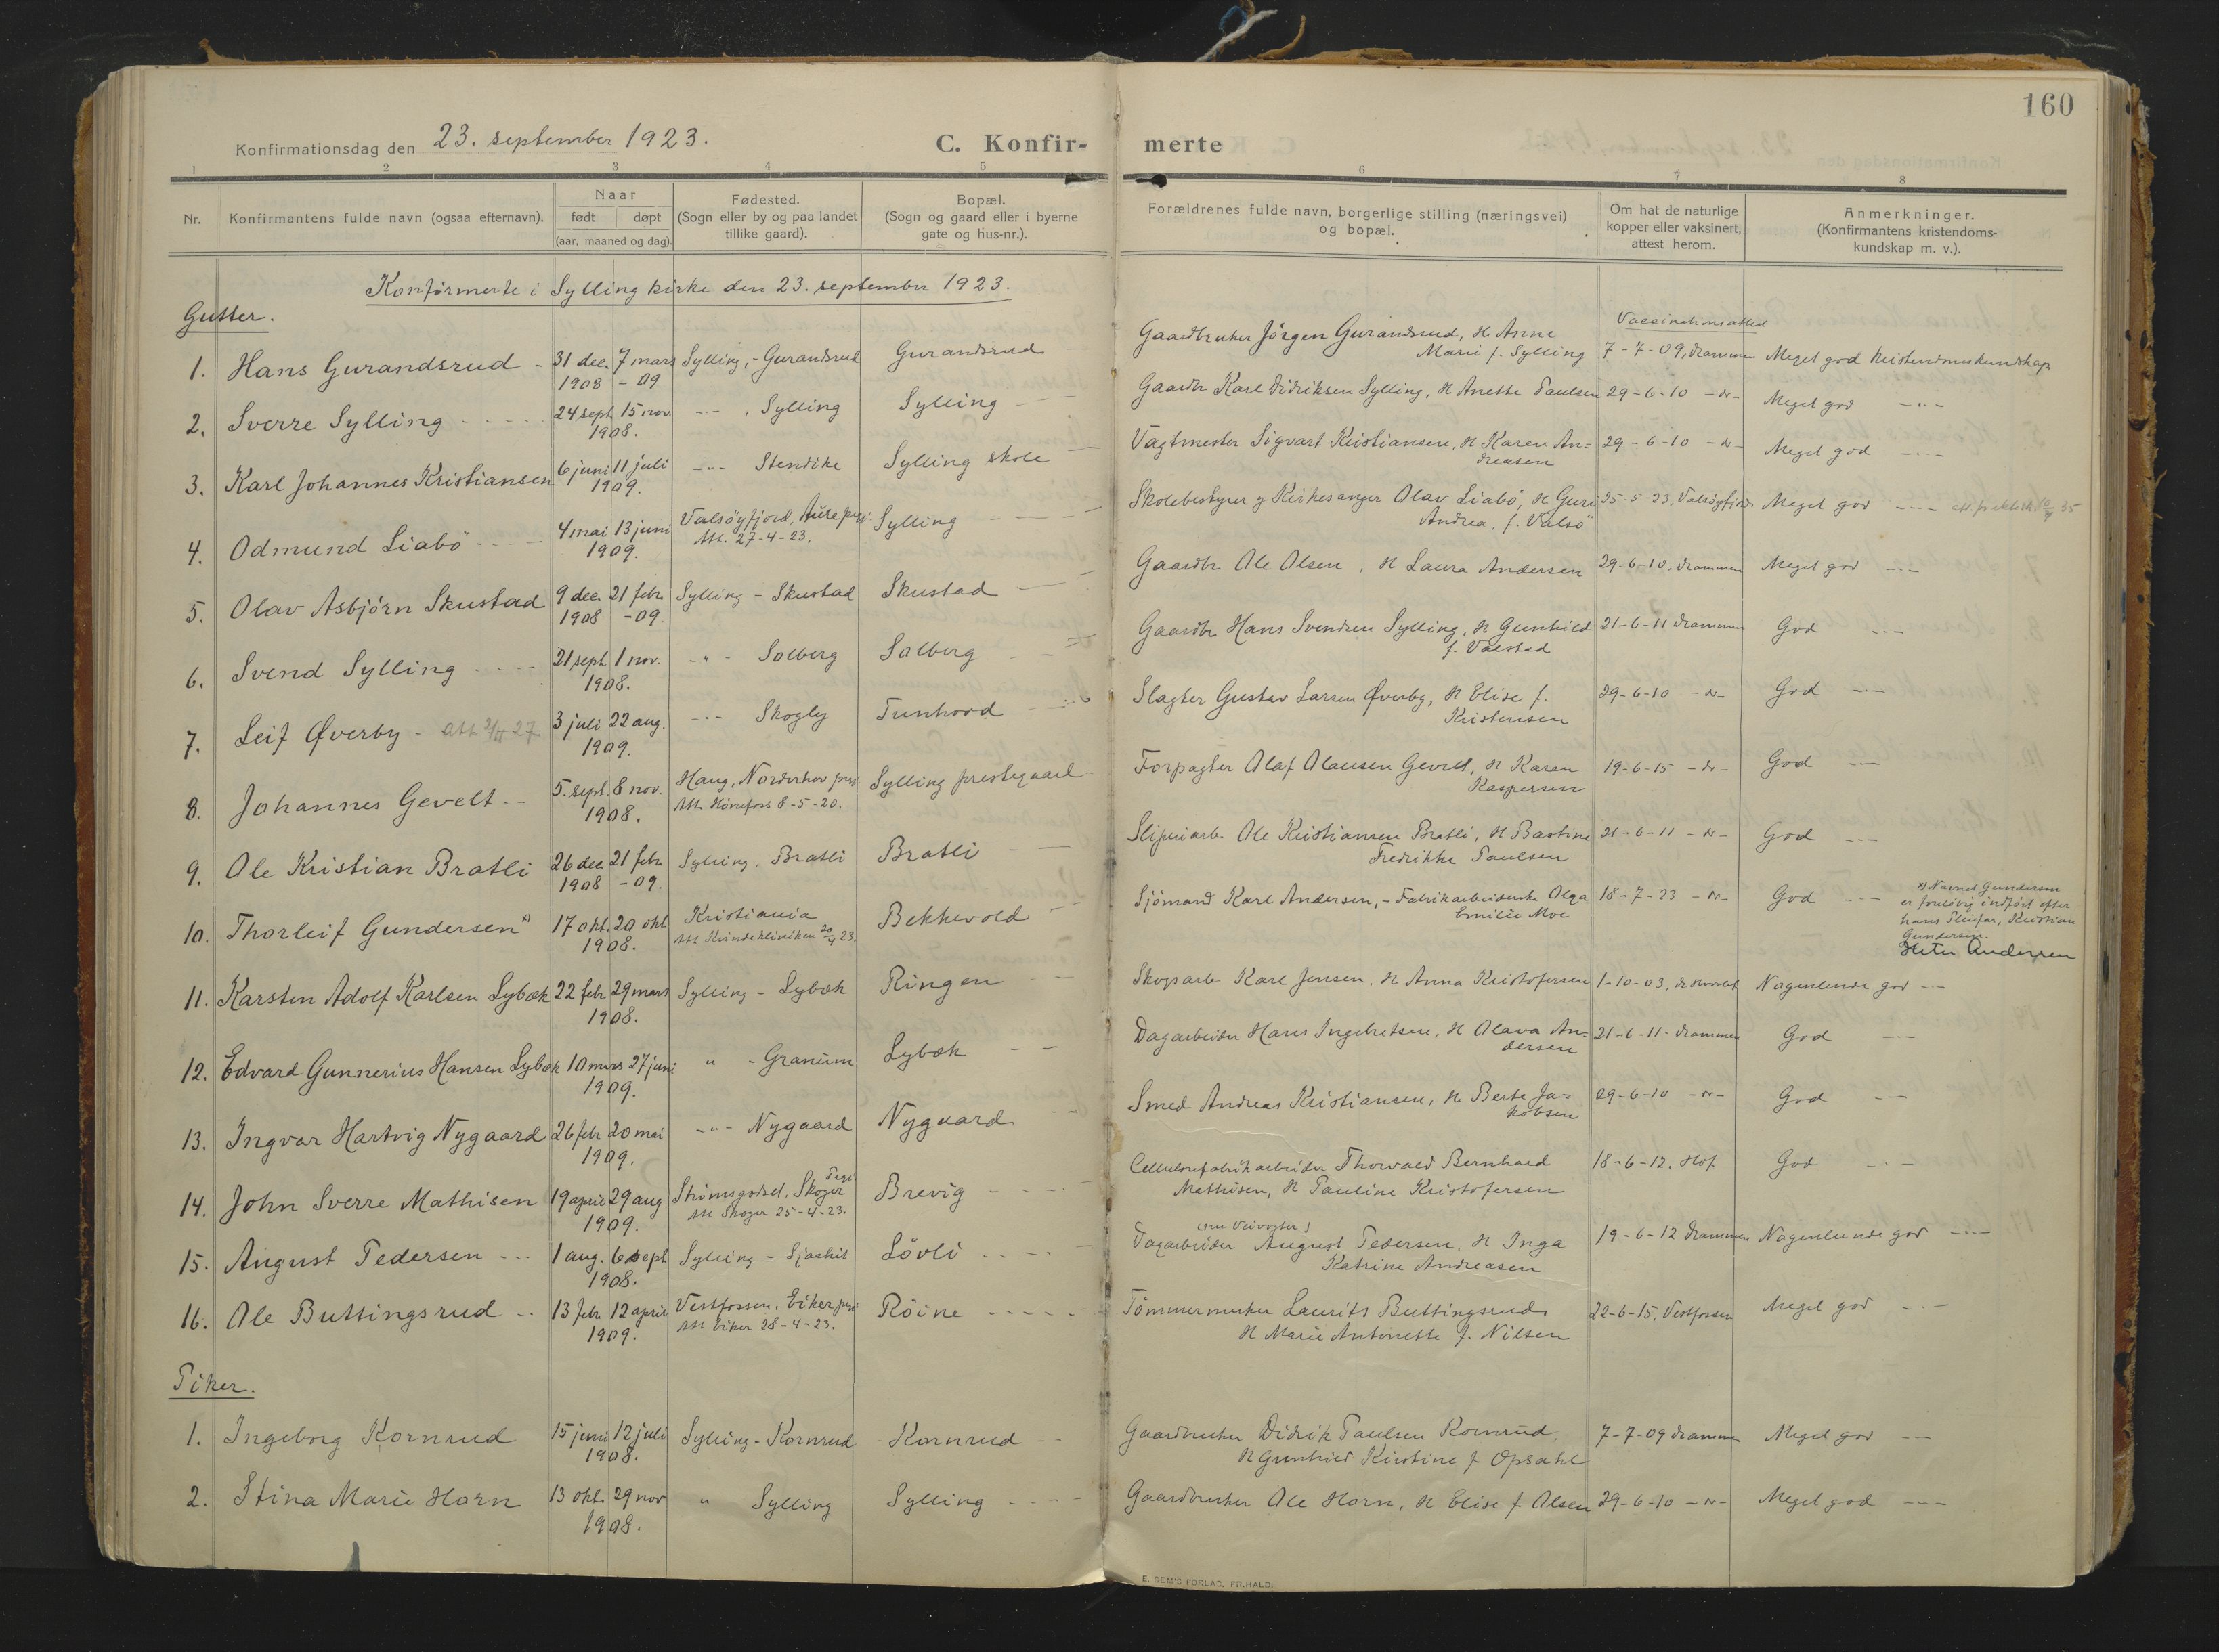 160
Konfirmationsdag den 23. september 1923. C. Konfir- merte
1 2 3 4 5 6 7 8
Nr. Konfirmantens fulde navn (ogsaa efternavn).
Naar
født døpt
(aar, maaned og dag).
Fødested.
(Sogn eller by og paa landet
tillike gaard).
Bopæl.
(Sogn og gaard eller i byerne
gate og hus-nr.).
Forældrenes fulde navn, borgerlige stilling (næringsvei)
og bopæl.
Om hat de naturlige
kopper eller vaksinert,
attest herom.
Anmerkninger.
(Konfirmantens kristendoms-
kundskap m. v.).
Konfirmerte i Sylling kirke den 23. september 1923.
Gutter.
Vaccinationsattest
1. Hans Gurandsrud - 31 dec. 7 mars Sylling, - Gurandsrud Gurandsrud Gaardbruker Jörgen Gurandsrud, H Anne
1908 - 09 Marie f. Sylling 7-7-09, Drammen Meget god kristendomskundskap
2. Sverre Sylling 24 sept. 15 nov. -"- , Sylling Sylling Gaardbr Karl Didriksen Sylling, H Anette Paulsen 29-6-10 -"- Meget god -"-
1908.
3. Karl Johannes Kristiansen 6 juni 11 juli -"- Stendike Sylling skole Vagtmester Sigvart Kristiansen, H Karen An= 29-6-10 -"- Meget god -"-
1909. dreasen
4. Odmund Liabö 4 mai 13 juni Valsöyfjord, Aure pgj. Sylling Skolebestyrer og Kirkesanger Olav Liabö, H Guri 25-5-23, Valsöyfjord Meget god -"-
1909. Att. 27-4-23. Andrea, f. Valsö
5. Olav Asbjörn Skustad 9 dec. 21 febr. Sylling - Skustad Skustad Gaardbr Ole Olsen, H Laura Andersen 29-6-10, Drammen Meget god -"-
1908 -09.
6. Svend Sylling 21 sept. 1 nov. -"- Solberg Solberg Gaardbr Hans Svendsen Sylling, H Gunhild 21-6-11 Drammen God -"-
1908. f. Valstad
7. Leif Øverby - att 2/11 27 3 juli 22 aug. -"- Skogly Tunhovd Slagter Gustav Larsen Øverby, H Elise f. 29-6-10 -"- God -"-
1909. Kristensen
8. Johannes Gevelt 5. sept. 8 nov. Haug, Norderhov pgj. Sylling prestegaard Forpagter Olaf Olausen Gevelt, H Karen 19-6-15 -"- God -"-
1908. Att. Hönefoss 8-5-20. Kaspersen
9. Ole Kristian Bratli 26 dec. 21 febr. Sylling. Bratli Bratli Sliperiarb. Ole Kristiansen Bratli, H Bastine 21-6-11 -"- God -"-
1908 -09. Fredrikke Paulsen
10. Thorleif Gundersen x) 17 okt. 20 okt Kristiania Bekkevold Sjömand Karl Andersen, - Fabrikarbeiderske Olga 18-7-23 -"- God -"-
1908. Att Kvindekliniken 20/4 23. Emilie Moe
x) Navnet Gundersen
er forelöbig indfört efter
hans Pleiefar, Kristian
Gundersen.
Heter Andersen
11. Karsten Adolf Karlsen Lybæk 22 febr. 29 mars Sylling - Lybæk Ringen Skogsarb Karl Jensen, H Anna Kristofersen 1-10-03, Nogenlunde god -"-
1908.
12. Edvard Gunnerius Hansen Lybæk 10 mars 27 juni " - Granum Lybæk Dagarbeider Hans Ingebretsen, H Olava An= 21-6-11. Drammen God -"-
1909. dersen
13. Ingvar Hartvig Nygaard 26 febr 20 mai -"- Nygaard Nygaard Smed Andreas Kristiansen, H Berte Ja= 29-6-10 -"- God -"-
1909. kobsen
14. John Sverre Mathisen 19 april 29 aug Strömsgodset. Skoger pgj. Brevig Cellulosefabrikarbeider Thorvald Bernhard 18-6-12. Hof God -"-
1909. Att Skoger 25-4-23. Mathisen, H Pauline Kristofersen
15. August Pedersen 1 aug. 6 sept Sylling - Sjaakil Lövli Dagarbeider (nu Veivogter) August Pedersen, H Inga 19-6-12 Drammen Nogenlunde god -"-
1908. Katrine Andreasen
16. Ole Buttingsrud 13 febr 12 april Vestfossen. Eiker pgj Röine Tömmermerker Laurits Buttingsrud 22-6-15, Vestfossen Meget god -"-
1909. Att Eiker 28-4-23. H Marie Antonette f. Nilsen
Piker.
1. Ingeborg Kornrud 15 juni 12 juli Sylling - Kornrud Kornrud Gaardbruker Didrik Paulsen Kornrud, 7-7-09 Drammen Meget god -"-
1908. H Gunhild Kirstine f Opsahl
2. Stina Marie Horn 13 okt. 29 nov " Sylling Sylling Gaardbruker Ole Horn, H Elise f. Olsen 29-6-10 -"- Meget god -"-
1908.
E. SEM'S FORLAG, FR.HALD.